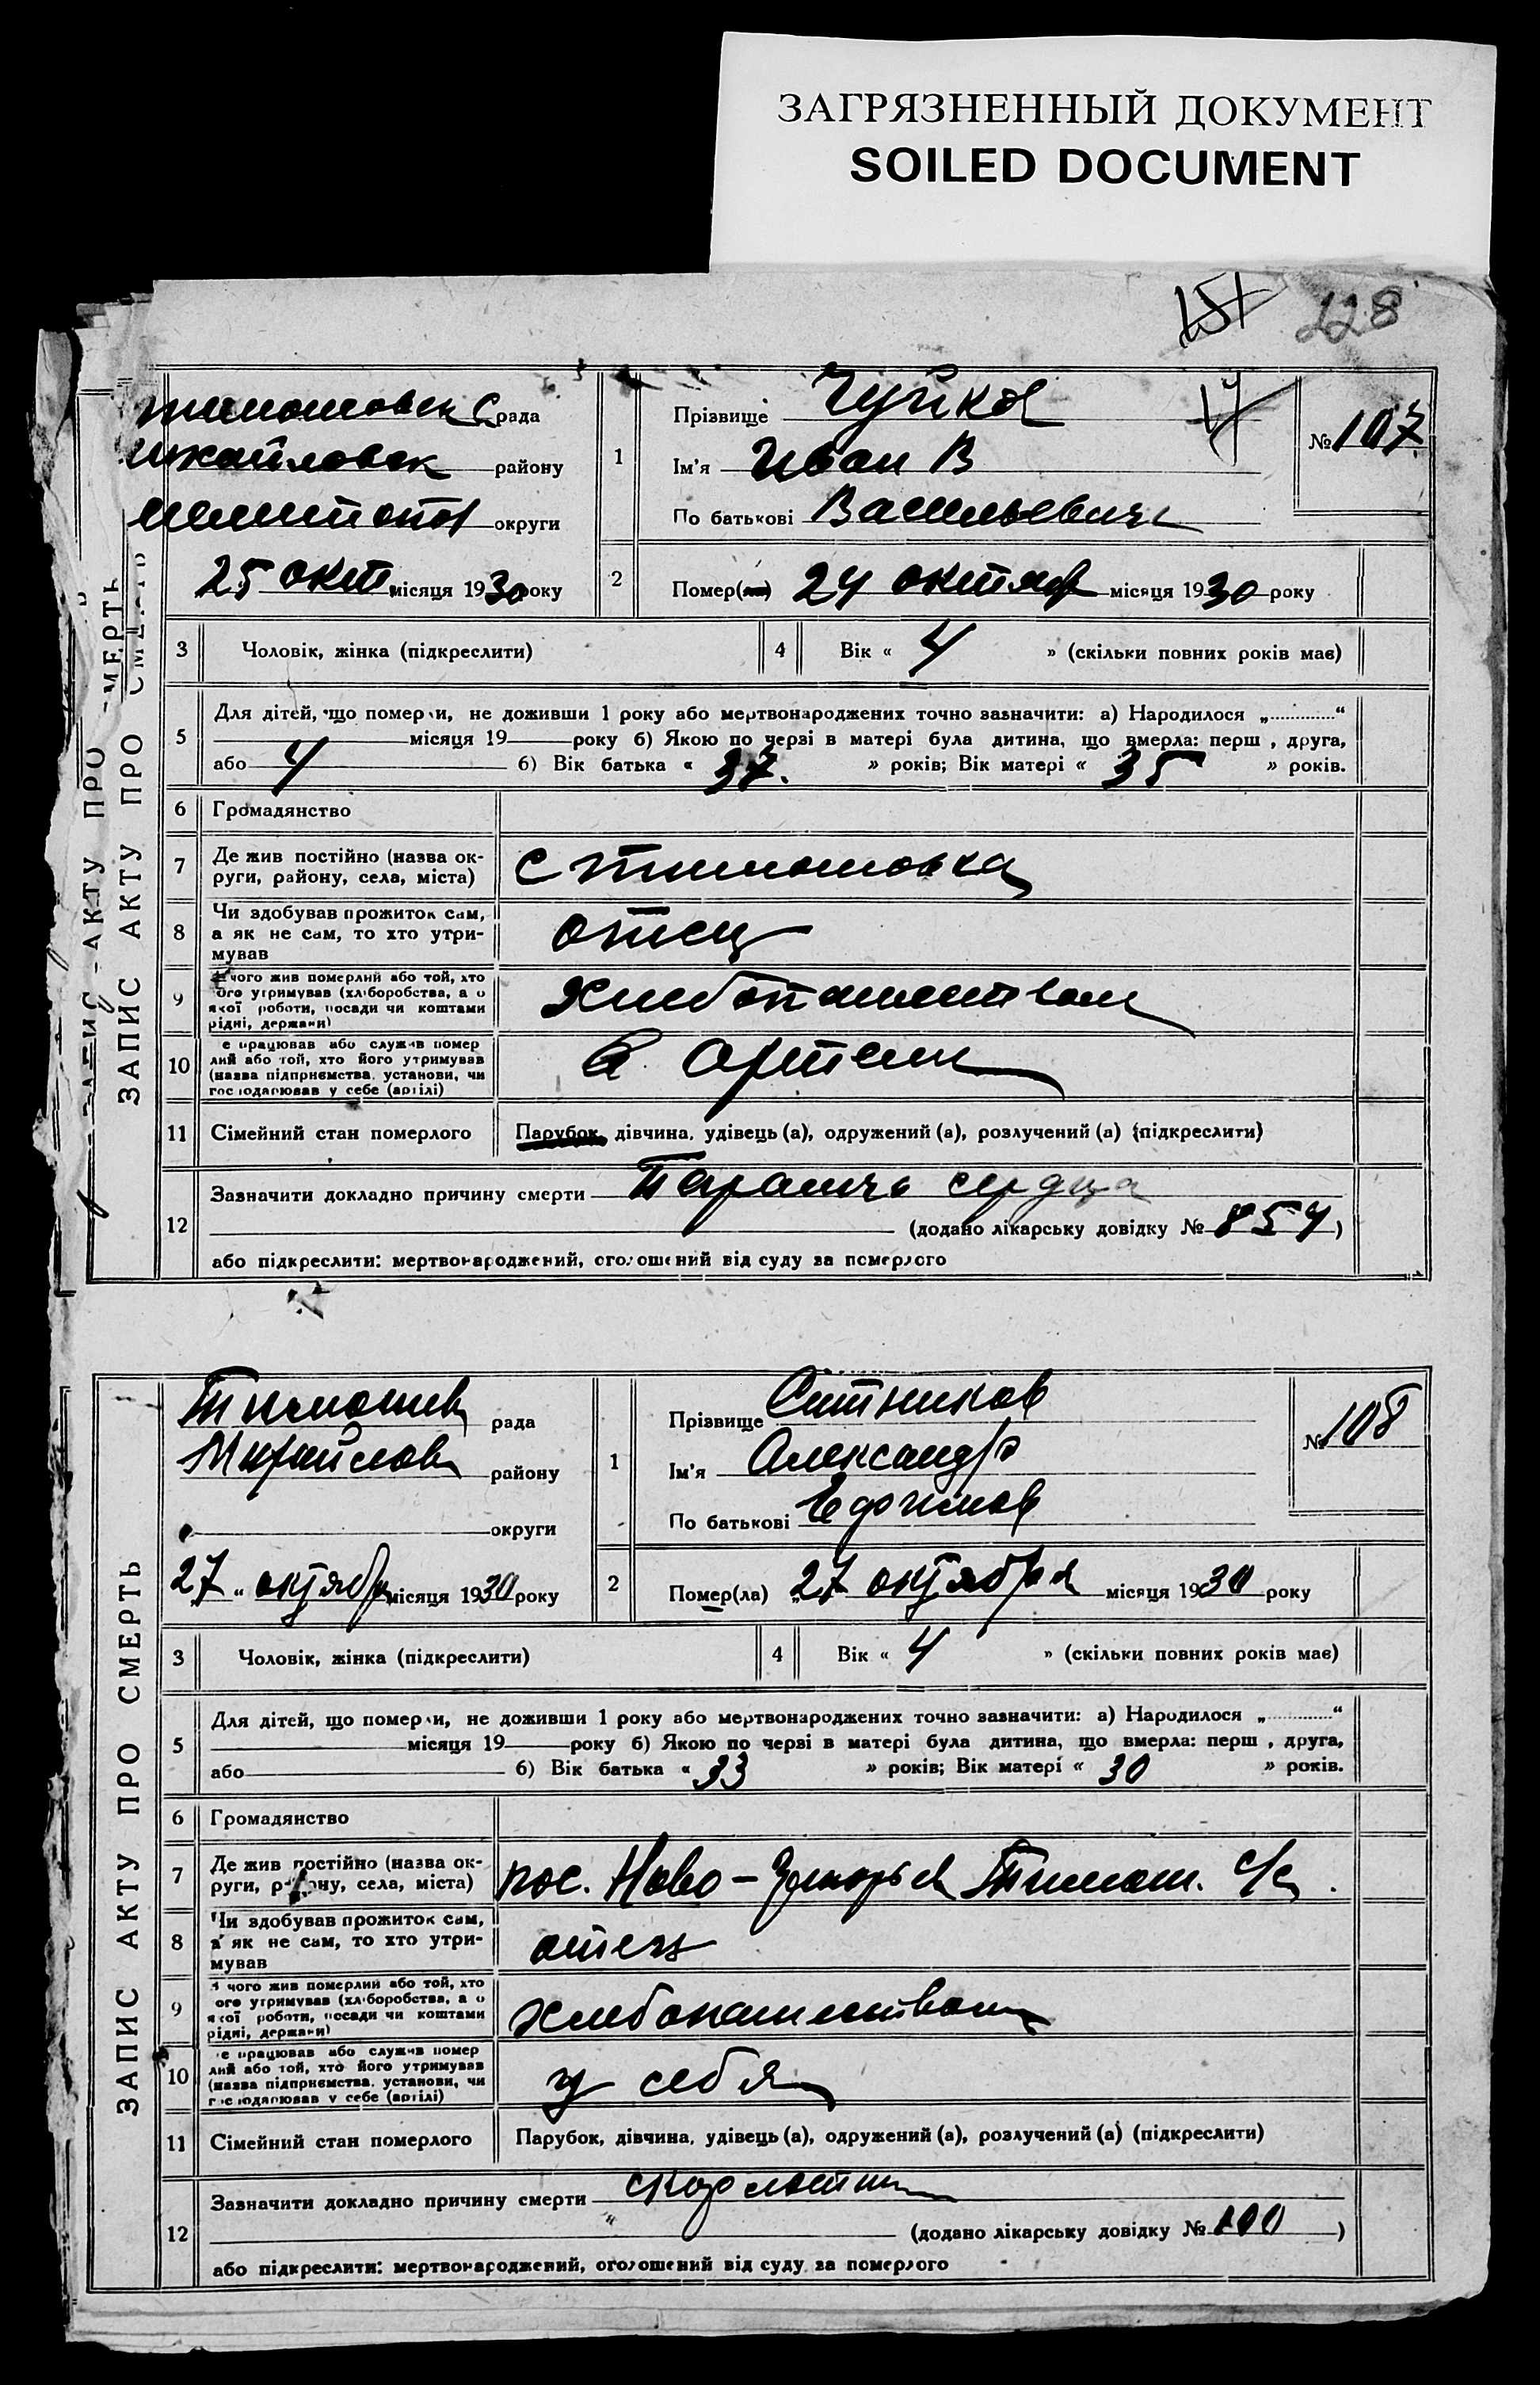 ЗАГРЯЗНЕННЫЙ ДОКУМЕНТ
SOILED DOCUMENT
151 128
ЗАПИС АКТУ ПРО СМЕРТЬ
тимошовск С рада
михайловск району
мелитопол округи
25 окт місяця 1930 року
1
Прізвище Чуйко
Ім'я Иван В
По батькові Васильевич
№ 107
2
Помер(ла) 24 октяб місяця 1930 року
3 Чоловік, жінка (підкреслити)
4 Вік « 4 » (скільки повних років має)
5 Для дітей, що померли, не доживши 1 року або мертвонароджених точно зазначити: а) Народилося „............“
місяця 19 року б) Якою по черзі в матері була дитина, що вмерла: перш , друга,
або 4 б) Вік батька « 37. » років; Вік матері « 35 » років.
6 Громадянство
7 Де жив постійно (назва ок-
руги, району, села, міста) с тимошовка
8 Чи здобував прожиток сам,
а як не сам, то хто утри-
мував отец
9 чого жив померлий або той, хто
ого утримував (хліборобства, а о
якої роботи, посади чи коштами
рідні, держави) хлебопашеством
10 е працював або служив помер
лий або той, хто його утримував
(назва підприємства, установи, чи
господарював у себе (артілі) в артели
11 Сімейний стан померлого Парубок, дівчина, удівець (а), одружений (а), розлучений (а) (підкреслити)
12 Зазначити докладно причину смерти Паралич сердца
(додано лікарську довідку № 854)
або підкреслити: мертвонароджений, оголошений від суду за померлого
ЗАПИС АКТУ ПРО СМЕРТЬ
Тимошов рада
Михайлов району
округи
27 „ октября місяця 1930 року
1
Прізвище Ситников
Ім'я Александр
По батькові Ефимов
№ 108
2
Помер(ла) „27 октября місяця 1930 року
3 Чоловік, жінка (підкреслити)
4 Вік « 4 » (скільки повних років має)
5 Для дітей, що померли, не доживши 1 року або мертвонароджених точно зазначити: а) Народилося „............“
місяця 19 року б) Якою по черзі в матері була дитина, що вмерла: перш , друга,
або б) Вік батька « 33 » років; Вік матері « 30 » років.
6 Громадянство
7 Де жив постійно (назва ок-
руги, району, села, міста) пос. Ново- Тимош. с/с.
8 Чи здобував прожиток сам,
а як не сам, то хто утри-
мував отец
9 чого жив померлий або той, хто
ого утримував (хліборобства, а о
якої роботи, посади чи коштами
рідні, держави) хлебопашеством
10 е працював або служив помер
лий або той, хто його утримував
(назва підприємства, установи, чи
господарював у себе (артілі) у себя
11 Сімейний стан померлого Парубок, дівчина, удівець (а), одружений (а), розлучений (а) (підкреслити)
12 Зазначити докладно причину смерти скорлатина
(додано лікарську довідку № 100 )
або підкреслити: мертвонароджений, оголошений від суду за померлого